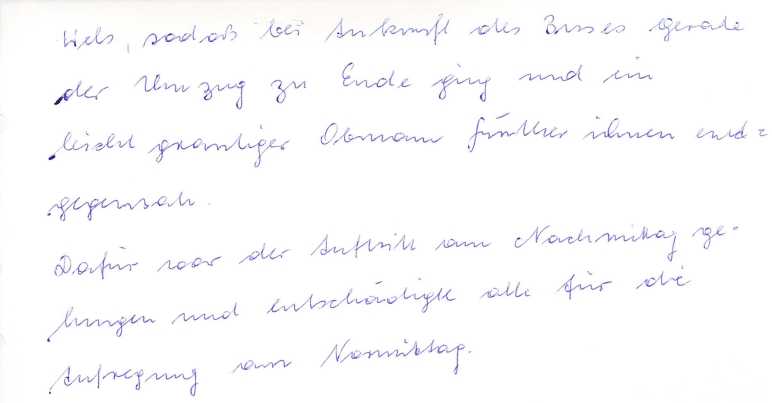 Wels, sodaß bei Ankunft des Busses gerade
der Umzug zu Ende ging und ein
leicht grantiger Obmann Günther ihnen ent=
gegensah.
Dafür war der Auftritt am Nachmittag ge-
lungen und entschädigte alle für die
Aufregung am Vormittag.